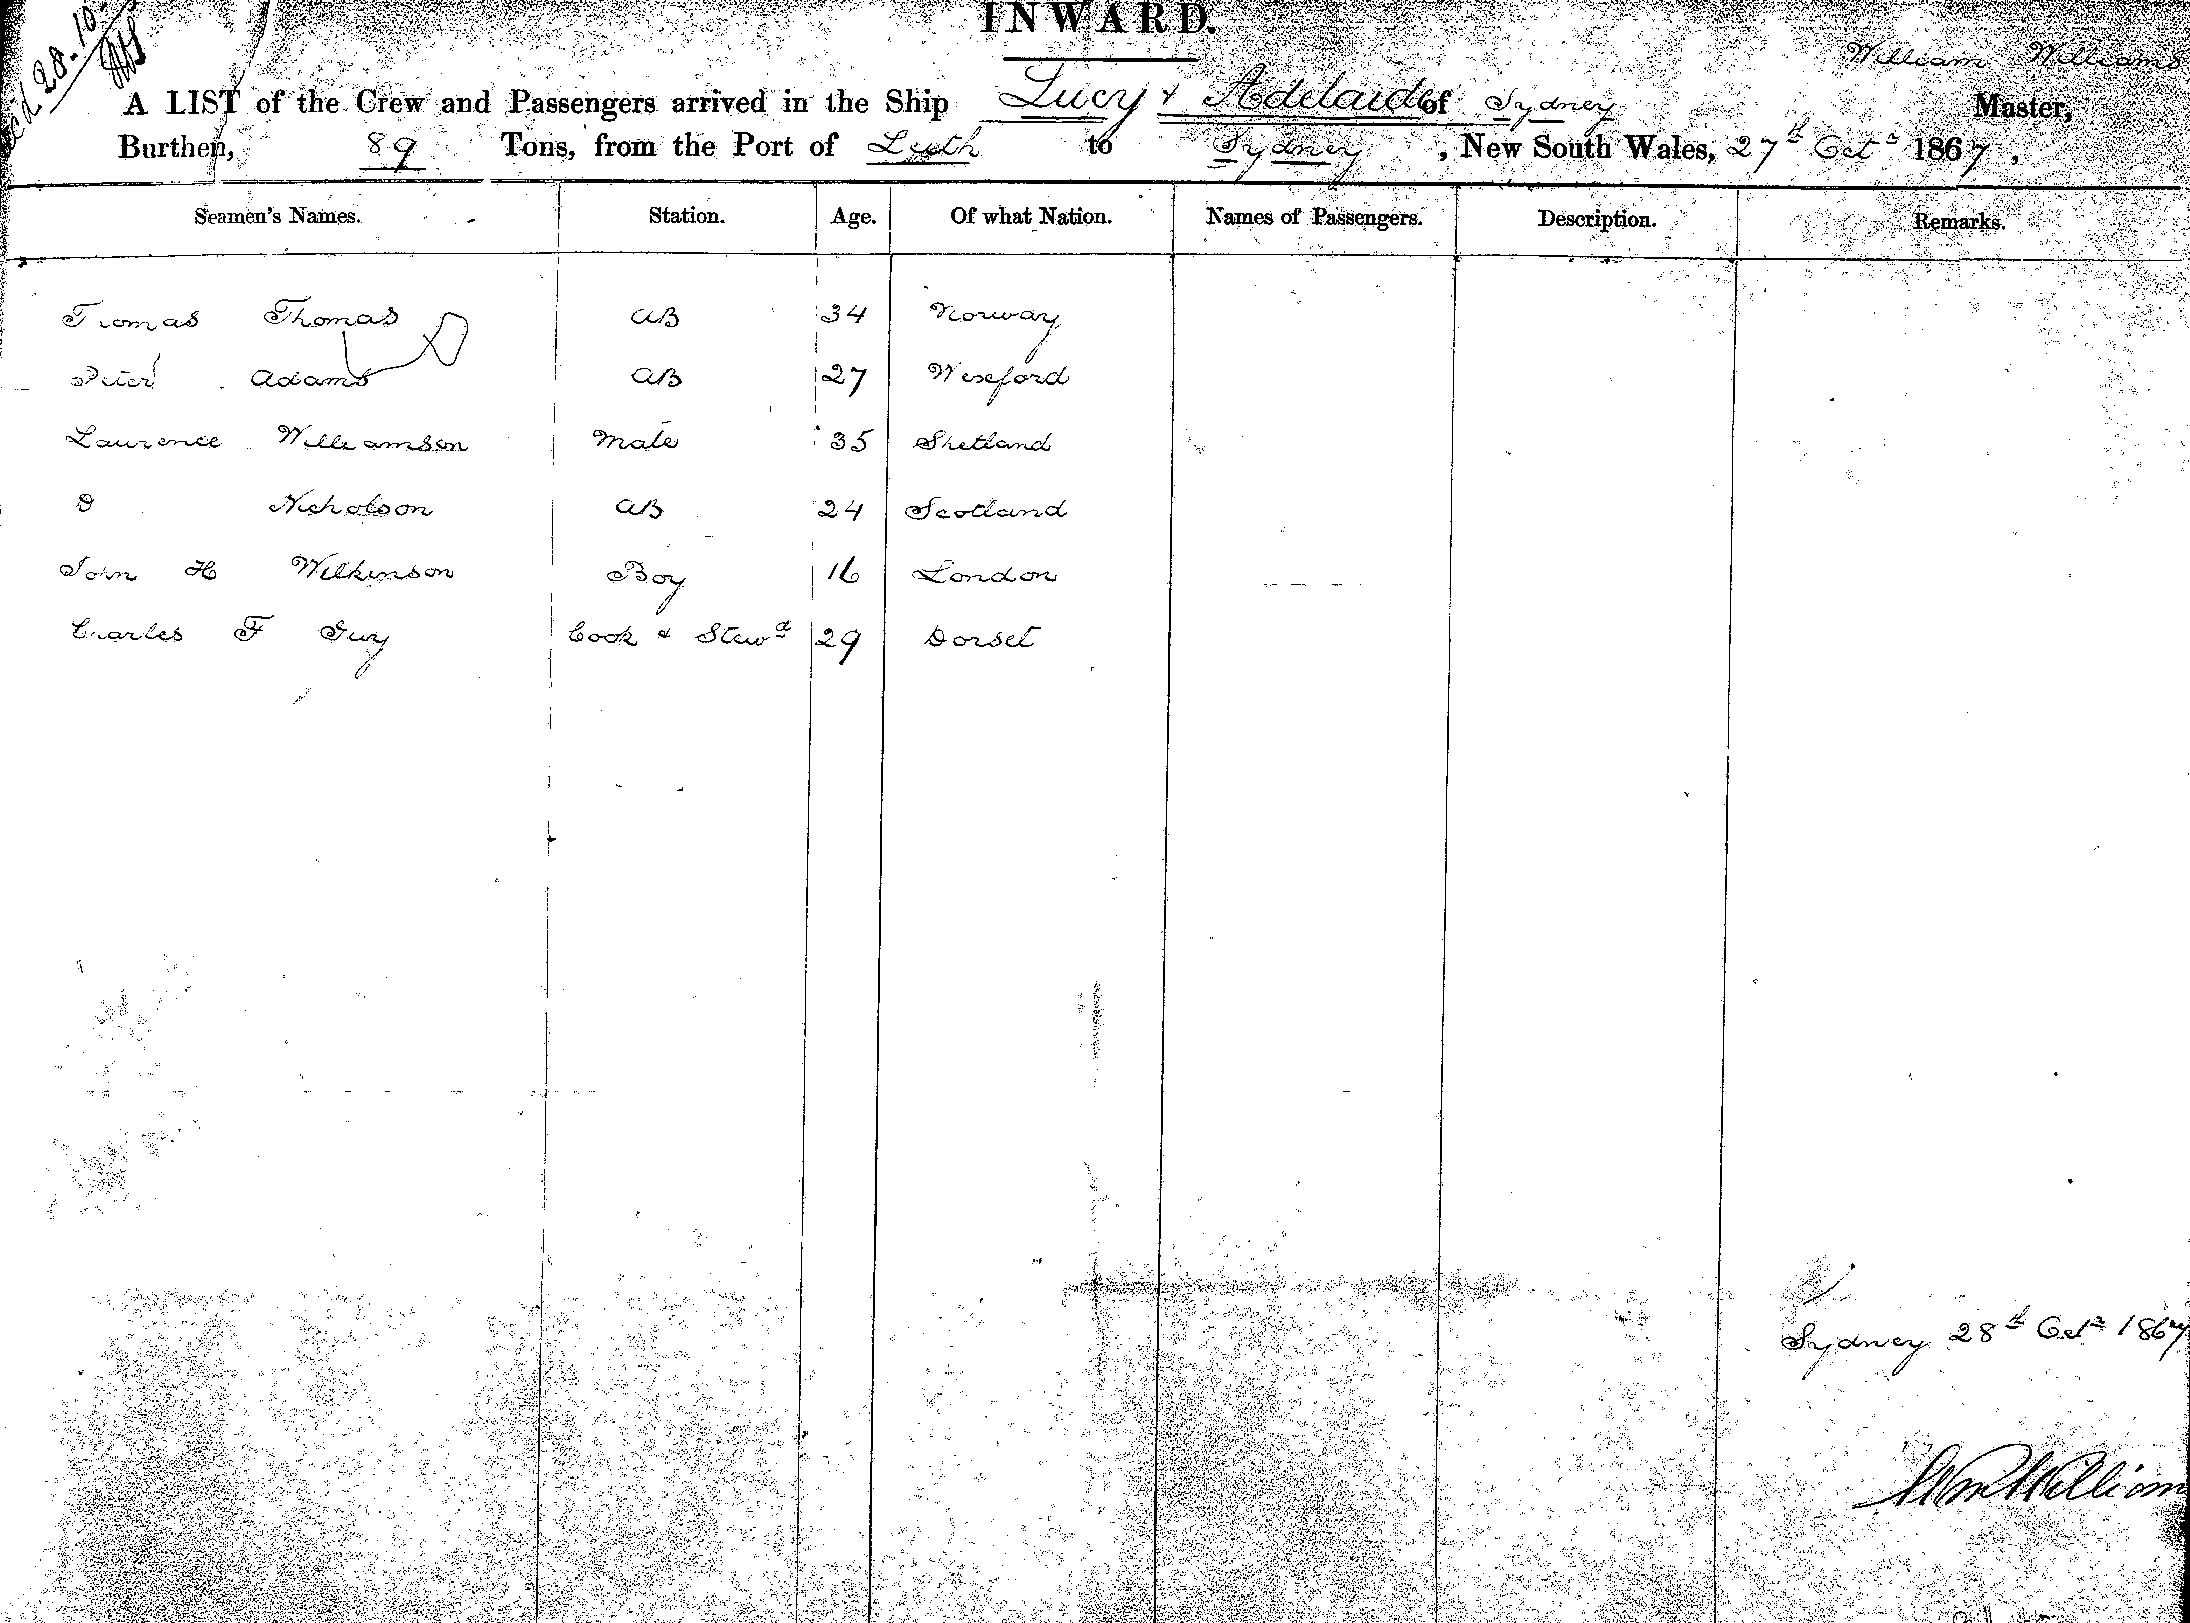 28.10.
INWARD.
William Williams
A LIST of the Crew and Passengers arrived in the Ship Lucy & Adelaide of Sydney Master,
Burthen, 89 Tons, from the Port of Leith to Sydney, New South Wales, 27th Octr 1867.
Seamen's Names. Station. Age. Of what Nation. Names of Passengers. Description. Remarks.
Thomas Thomas AB 34 Norway
Peter Adams AB 27 Wexford
Laurence Williamson Mate 35 Shetland
D Nicholson AB 24 Scotland
John H Wilkinson Boy 16 London
Charles F Guy Cook & Stewd 29 Dorset
Sydney 28th Octr 1867
Wm William